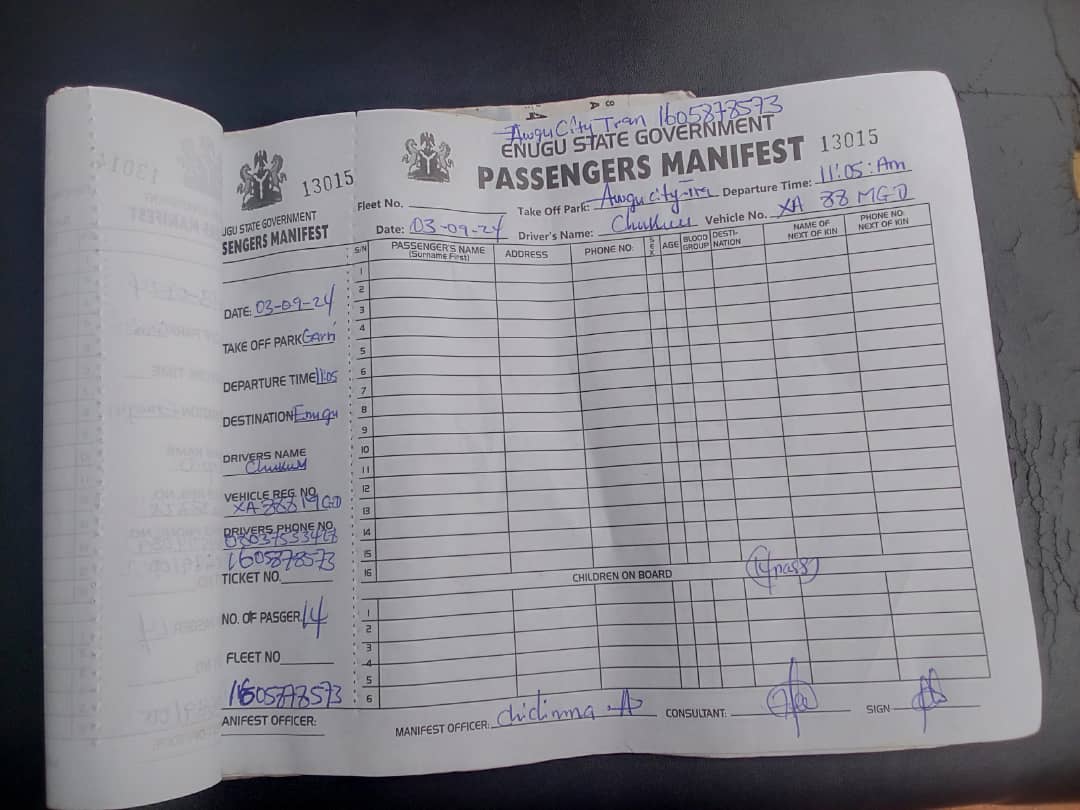 13015
UGU STATE GOVERNMENT
SENGERS MANIFEST
DATE: 03-09-24
TAKE OFF PARK Garri
DEPARTURE TIME 11:05
DESTINATION Enugu
DRIVERS NAME
VEHICLE REG. NO
DRIVERS PHONE NO
1605878573
TICKET NO.
NO. OF PASGER 14
FLEET NO
1605878573
ANIFEST OFFICER:
Awgu City Tran 1605878573
ENUGU STATE GOVERNMENT
PASSENGERS MANIFEST 13015
Fleet No. Take Off Park: Awgu city-Tra Departure Time: 11:05:Am
Date: 03-09-24 Driver's Name: Vehicle No. XA 88 MGD
S/N PASSENGER'S NAME (Surname First) ADDRESS PHONE NO: SEX AGE BLOOD GROUP DESTI-NATION NAME OF NEXT OF KIN PHONE NO: NEXT OF KIN
1
2
3
4
5
6
7
8
9
10
11
12
13
14
15
16
CHILDREN ON BOARD 14pass
1
2
3
4
5
6
MANIFEST OFFICER: chidinma A CONSULTANT: SIGN